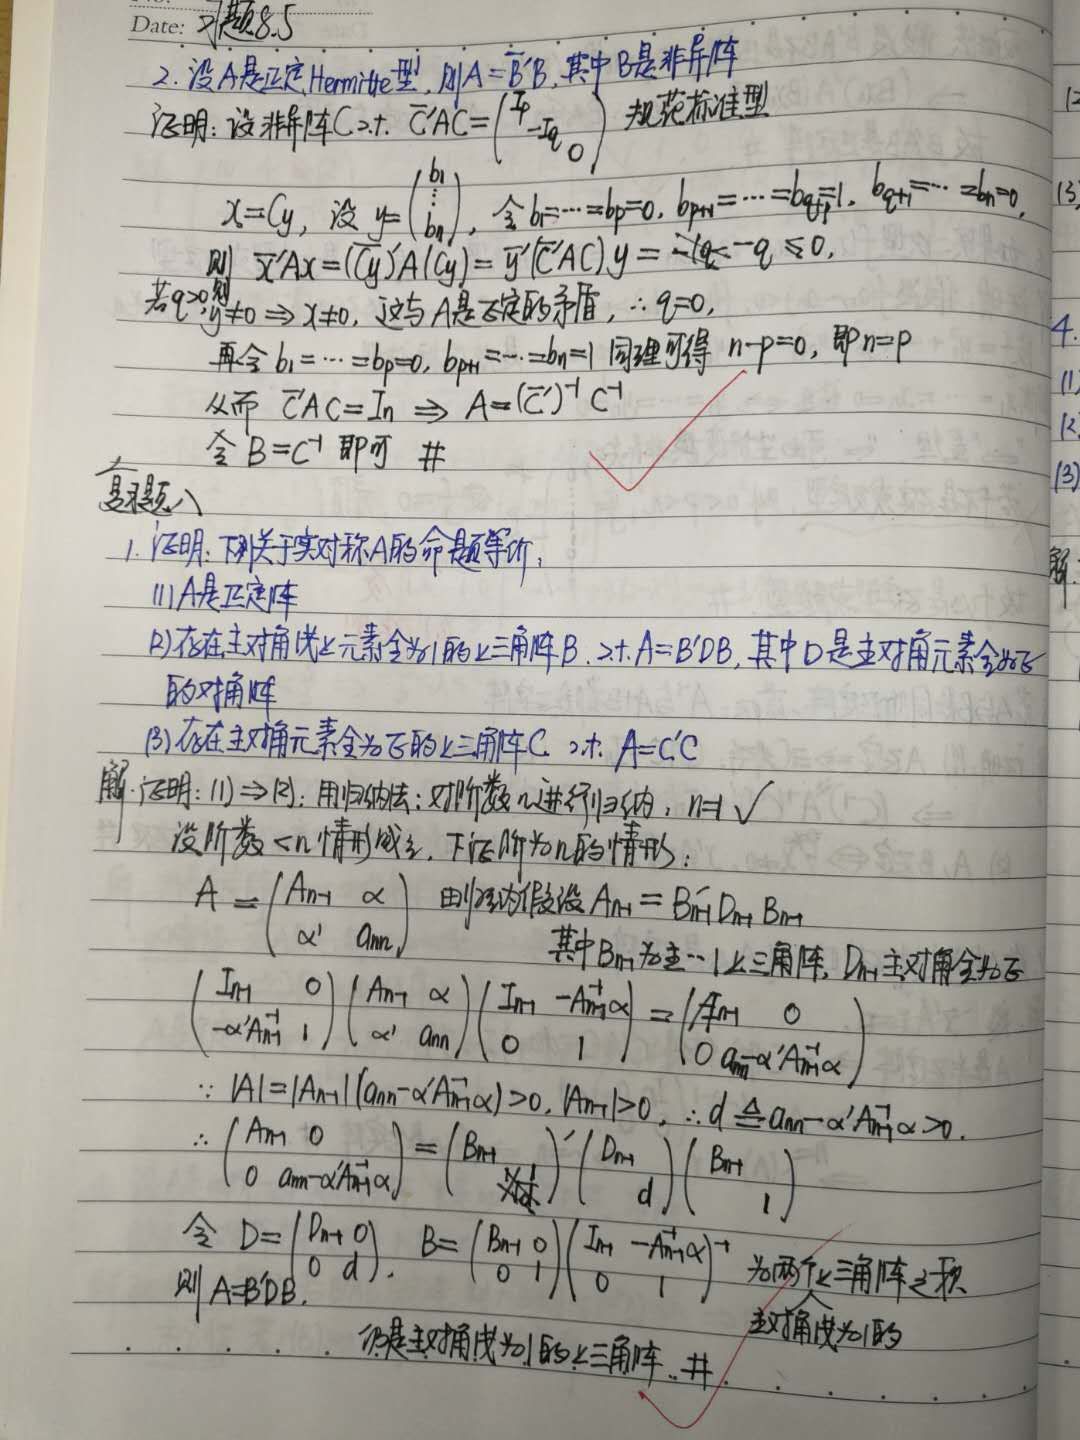 Date: 习题8.5
2. 设A是正定Hermitte型, 则A=B̅'B, 其中B是非异阵
证明: 设非异阵C s.t. C̅'AC=(Ip -Iq 0) 规范标准型
x=Cy, 设 y=(b1 ⋮ bn), 令b1=⋯=bp=0, bp+1=⋯=bq+p=1, bq+1=⋯=bn=0,
则 x̅'Ax=(C̅y̅)'A(Cy)=y̅'(C̅'AC)y= -q ≤0,
若q>0, 则y≠0 ⇒ x≠0, 这与A是正定的矛盾, ∴q=0,
再令b1=⋯=bp=0, bp+1=⋯=bn=1 同理可得 n-p=0, 即n=p
从而 C̅'AC=In ⇒ A=(C̅')⁻¹C⁻¹
令B=C⁻¹ 即可 #
复习题八
1. 证明: 下列关于实对称A的命题等价:
(1) A是正定阵
(2) 存在主对角线上元素全为1的上三角阵B, s.t. A=B'DB, 其中D是主对角元素全为正
的对角阵
(3) 存在主对角元素全为正的上三角阵C s.t. A=C'C
解: 证明: (1)⇒(2): 用归纳法: 对阶数n进行归纳, n=1 ✓
设阶数<n情形成立, 下证阶为n的情形:
A=(An-1 α; α' ann) 由归纳假设An-1=B'n-1Dn-1Bn-1
其中Bn-1为主⋯1上三角阵, Dn-1主对角全为正
(In-1 0; -α'An-1⁻¹ 1)(An-1 α; α' ann)(In-1 -An-1⁻¹α; 0 1)=(An-1 0; 0 ann-α'An-1⁻¹α)
∵|A|=|An-1|(ann-α'An-1⁻¹α)>0, |An-1|>0, ∴d≜ann-α'An-1⁻¹α>0.
∴(An-1 0; 0 ann-α'An-1⁻¹α)=(Bn-1 1)'(Dn-1 d)(Bn-1 1)
令 D=(Dn-1 0; 0 d), B=(Bn-1 0; 0 1)(In-1 -An-1⁻¹α; 0 1)⁻¹ 为两个主对角线为1的上三角阵之积
则A=B'DB,
仍是主对角线为1的上三角阵. #